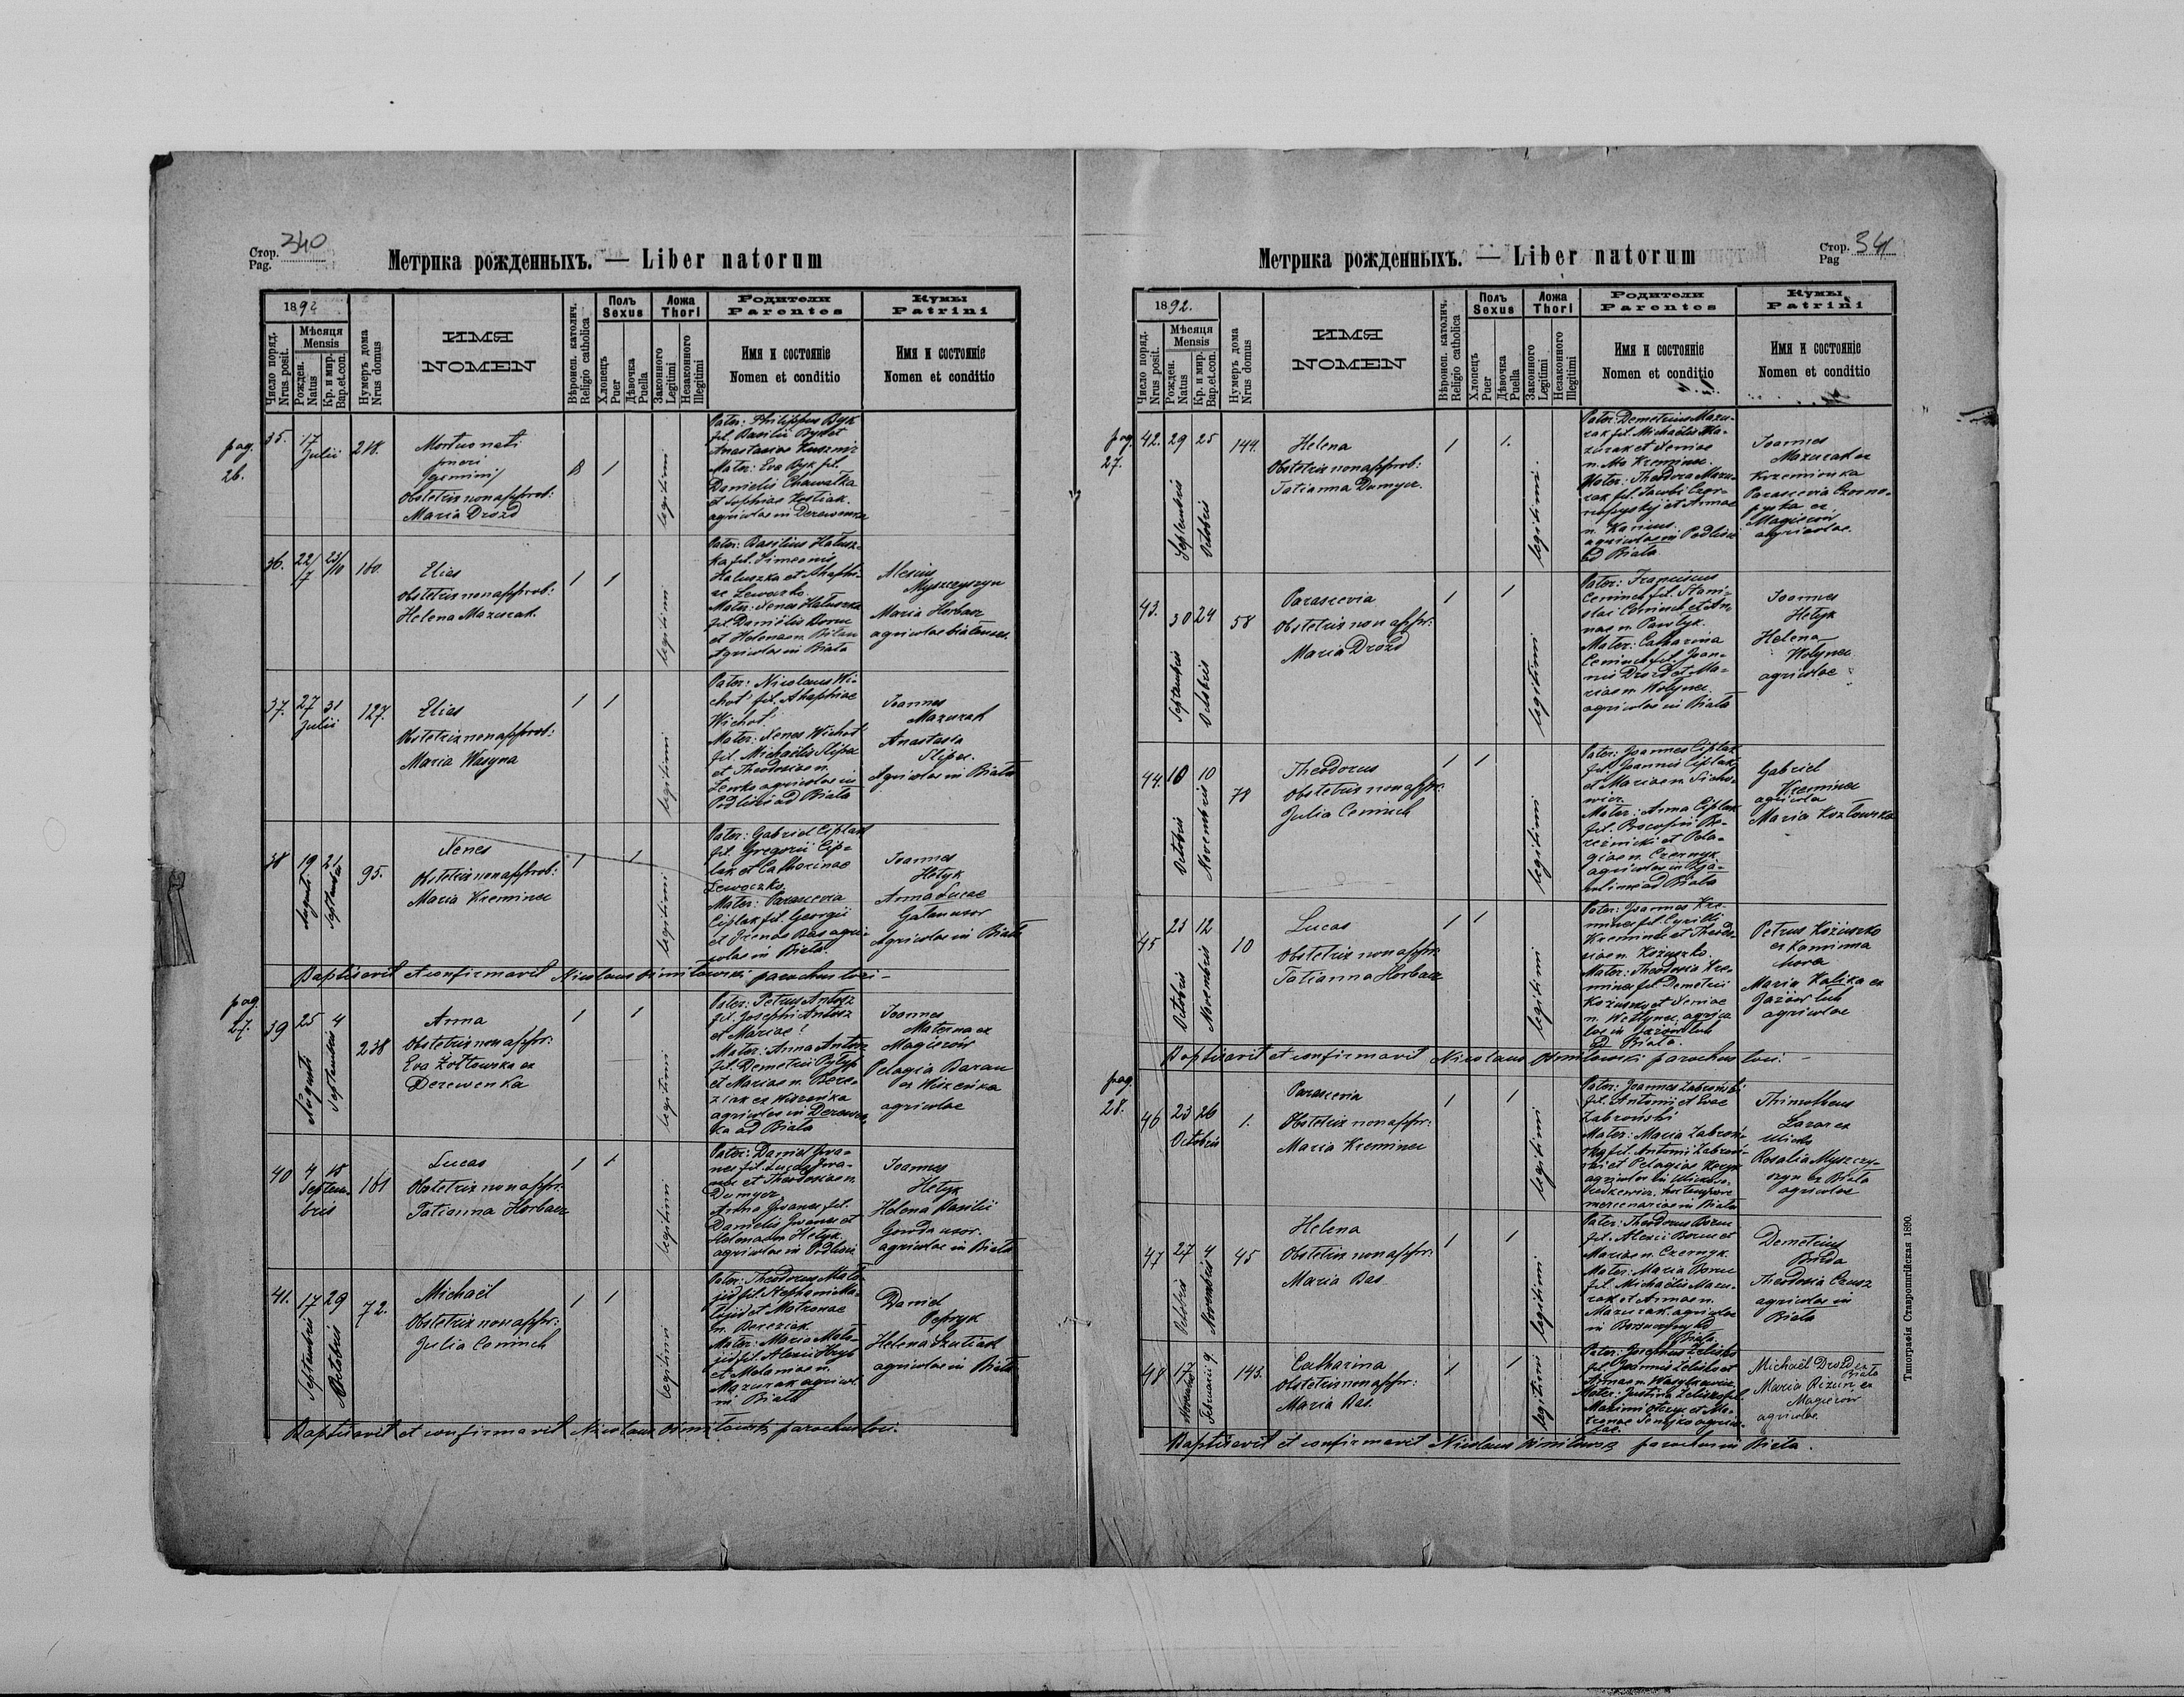 Стор. 340
Pag.
Метрика рожденныхъ. — Liber natorum
1892
Число поряд.
Nrus. posit.
Мѣсяця
Mensis
Рожден.
Natus
Кр. и мир.
Bap.et.con.
Нумеръ дома
Nrus domus
ИМЯ
NOMEN
Вѣроисп. католич.
Religio catholica
Полъ
Sexus
Хлопецъ
Puer
Дѣвочка
Puella
Ложа
Thori
Законного
Legitimi
Незаконного
Illegitimi
Родители
Parentes
Имя и состояніе
Nomen et conditio
Кумы
Patrini
Имя и состояніе
Nomen et conditio
pag.
26.
35.
17
Julii
218.
Mortuo nati
pueri
gemini
Obstetrix non approb:
Maria Drozd
1
legitimi
Pater: Philippus Byk
fil. Basilii Byk et
Anastasiae
Mater: Eva Byk fil.
Danielis Chawałka
et Sophiae Kostiak.
agricolae in Derewenka
36.
22/7
23/10
160.
Elias
obstetrix non approb:
Helena Mazurak.
1
1
legitimi
Pater: Basilius Hałusz-
ka fil. Simeonis
Hałuszka et Ahaphi-
ae Lewoczko.
Mater: Xenes Hałuszka
fil. Danielis Borue
et Helenae n.
Agricolae in Biała
Alexius
Myszczyszyn
Maria Horbacz
agricolae
37.
27
Julii
31
127.
Elias
Obstetrix non approb:
Maria Wasyna
1
1
legitimi
Pater: Nicolaus Wi-
chot fil. Ahaphiae
Wichot.
Mater: Xenes Wichot
fil. Michaëlis Slipec
et Theodosiae n.
agricolae in
Podlissi ad Biała
Joannes
Mazurak
Anastasia
Slipec.
Agricolae in Biała
38
19
Augusti
21
Septembris
95.
Xenes
Obstetrix non approb:
Maria Kreminec
1
1
legitimi
Pater: Gabriel Ciplak
fil. Gregorii Cip-
lak et Catharinae
Lewoczko.
Mater: Parascevia
Ciplak fil. Georgii
et Irenae Bas agri-
colae in Biała.
Joannes
Hetyk
Anna Lucae
Galan uxor
Agricolae in Biała
Baptisavit et confirmavit Nicolaus parochus loci –
pag.
27.
39
25
Augusti
4
Septembris
238
Anna
Obstetrix non appr:
Eva Żołtowska ex
Derewenka
1
1
legitimi
Pater: Petrus Antosz
fil. Josephi Antosz
et Mariae!
Mater: Anna Antosz
fil. Demetrii Pyłyp
et Mariae n. Bere-
ziak ex Wiszenka
agricolae in Derewen-
ka ad Biała
Joannes
Materna ex
Magierow
Pelagia Baran
ex Wiszenka
agricolae
40
4
Septem-
bris
15
161
Lucas
Obstetrix non appr:
Tatianna Horbacz
1
1
legitimi
Pater: Daniel Iwa-
nes fil. Lucae Iwa-
nes et Theodosiae n.
Dumycz
Anna Iwanes fil.
Danielis Iwanes et
Helenae n. Hetyk
agricolae in Podlissi
Joannes
Hetyk
Helena Basilii
Gowda uxor.
agricolae in Biała
41.
17
Septembris
29
Octobris
72.
Michaël
Obstetrix non appr:
Julia Cominch
1
1
legitimi
Pater: Theodorus Mało-
jid fil. Stephani Ma-
łojid et Matronae
n. Bereziak.
Mater: Maria Mało-
jid fil. Alexii Hryb
et Melaniae n.
Mazurak agricol.
in Biała
Daniel
Petryk
Helena Szutiak
agricolae in Biała
Baptisavit et confirmavit Nicolaus parochus loci.
Метрика рожденныхъ. — Liber natorum
Стор. 341
Pag
1892.
Число поряд.
Nrus. posit.
Мѣсяця
Mensis
Рожден.
Natus
Кр. и мир.
Bap.et.con.
Нумеръ дома
Nrus domus
ИМЯ
NOMEN
Вѣроисп. католич.
Religio catholica
Полъ
Sexus
Хлопецъ
Puer
Дѣвочка
Puella
Ложа
Thori
Законного
Legitimi
Незаконного
Illegitimi
Родители
Parentes
Имя и состояніе
Nomen et conditio
Кумы
Patrini
Имя и состояніе
Nomen et conditio
pag.
27.
42.
29
Septembris
25
Octobris
144.
Helena
Obstetrix non approb:
Tatianna Dumycz.
1
1.
legitimi.
Pater: Demetrius Mazu-
rak fil. Michaëlis Ma-
zurak et Xeniae
n. Kreminec.
Mater: Theodora Mazu-
rak fil. Jacobi Czor-
nopyskyj et Annae
n.
agricolae in Podlissi
ad Biała
Joannes
Mazurak ex
Krzeminka
Parascevia Czorno-
pyska ex
Magierow
agricolae.
43.
30
Septembris
24
Octobris
58
Parascevia
Obstetrix non appr:
Maria Drozd
1
1
legitimi
Pater: Franciscus
Cominch fil. Stani-
slai Cominch et An-
nae n. Pawlyk.
Mater: Catharina
Cominch fil. Joan-
nis Drozd et Ma-
riae n. Wołynec.
agricolae in Biała
Joannes
Hetyk
Helena
Wołynec
agricolae
44.
10
Octobris
10
Novembris
78
Theodorus
Obstetrix non appr:
Julia Cominch
1
1
legitimi
Pater: Joannes Ciplak
fil. Joannis Ciplak
et Mariae n.
Mater: Anna Ciplak
fil. Procopii Be-
reznicki et Pela-
giae n. Czernyk
agricolae in
ad Biała
Gabriel
Kreminec
agricola
Maria Kozłowska
45
23
Octobris
12
Novembris
10
Lucas
Obstetrix non appr:
Tatianna Horbacz
1
1
legitimi
Pater: Joannes Kre-
minec fil. Cyrilli
Kreminec et Theodo-
siae n. Kożuszko.
Mater: Theodosia Kre-
minec fil. Demetrii
Kożuszko et Xeniae
n. agrico-
lae in
ad Biała.
Petrus Kożuszko
ex Kaminna
hora
Maria Kalika ex
agricolae
Baptisavit et confirmavit Nicolaus parochus loci. –
pag.
28.
46
23
Octobris
26
1.
Parascevia
Obstetrix non appr:
Maria Kreminec
1
1
legitimi
Pater: Joannes Zabroński
fil. Antonii et Evae
Zabroński
Mater: Maria Zabroń-
ska fil. Antonii Zabroń-
ski et Pelagiae
agricolae in
mercenariae in Biała
Thimotheus
Lazar ex
Rosalia Myszczy-
szyn ex Biała
agricolae
47
27
Octobris
4
Novembris
45
Helena
Obstetrix non appr:
Maria Bas
1
1
legitimi
Pater: Theodorus Borue
fil. Alexii Borue et
Mariae n. Czernyk.
Mater: Maria Borue
fil. Michaëlis Mazu-
rak et Annae n.
Mazurak. agricolae
in
Biała
Demetrius
Buda
Theodosia Crusz
agricolae in
Biała
48
17
Novembris
9
Februarii
143.
Catharina
Obstetrix non appr:
Maria Bas.
1
1
legitimi
Pater: Josephus Zelisko
fil. Joannis Zelisko et
Annae n. Wasylkewicz
Mater: Justina Zelisko fil.
Maximi et Ma-
tronae Senejko agrico-
lae.
Michaël Drozd ex
Biała
Maria Rizun ex
Magierow
agricolae.
Baptisavit et confirmavit Nicolaus parochus in Biała.
Типографія Ставропигійская 1890.